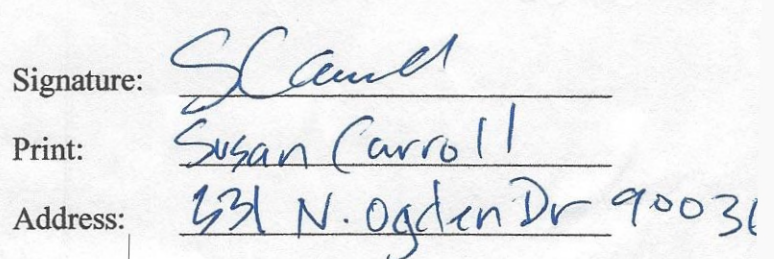 Signature: SCarroll
Print: Susan Carroll
Address: 331 N. Ogden Dr 90036